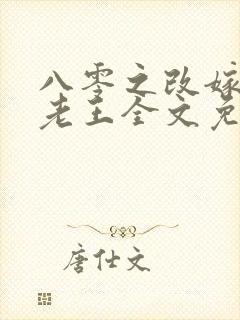 八零之改嫁
老王全文免
唐仕文